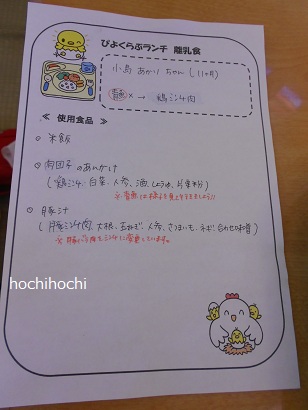 ぴよくらぶランチ 離乳食
小島 あかり ちゃん (11ヶ月)
青魚× → 鶏ミンチ肉
≪ 使用食品 ≫
○ 米飯
○ 肉団子のあんかけ
(鶏ミンチ、白菜、人参、酒、しょうゆ、片栗粉)
○ 豚汁
(豚ミンチ肉、大根、玉ねぎ、人参、さつまいも、ネギ、合わせみそ)
※豚バラ肉をミンチに変更しています。
hochihochi